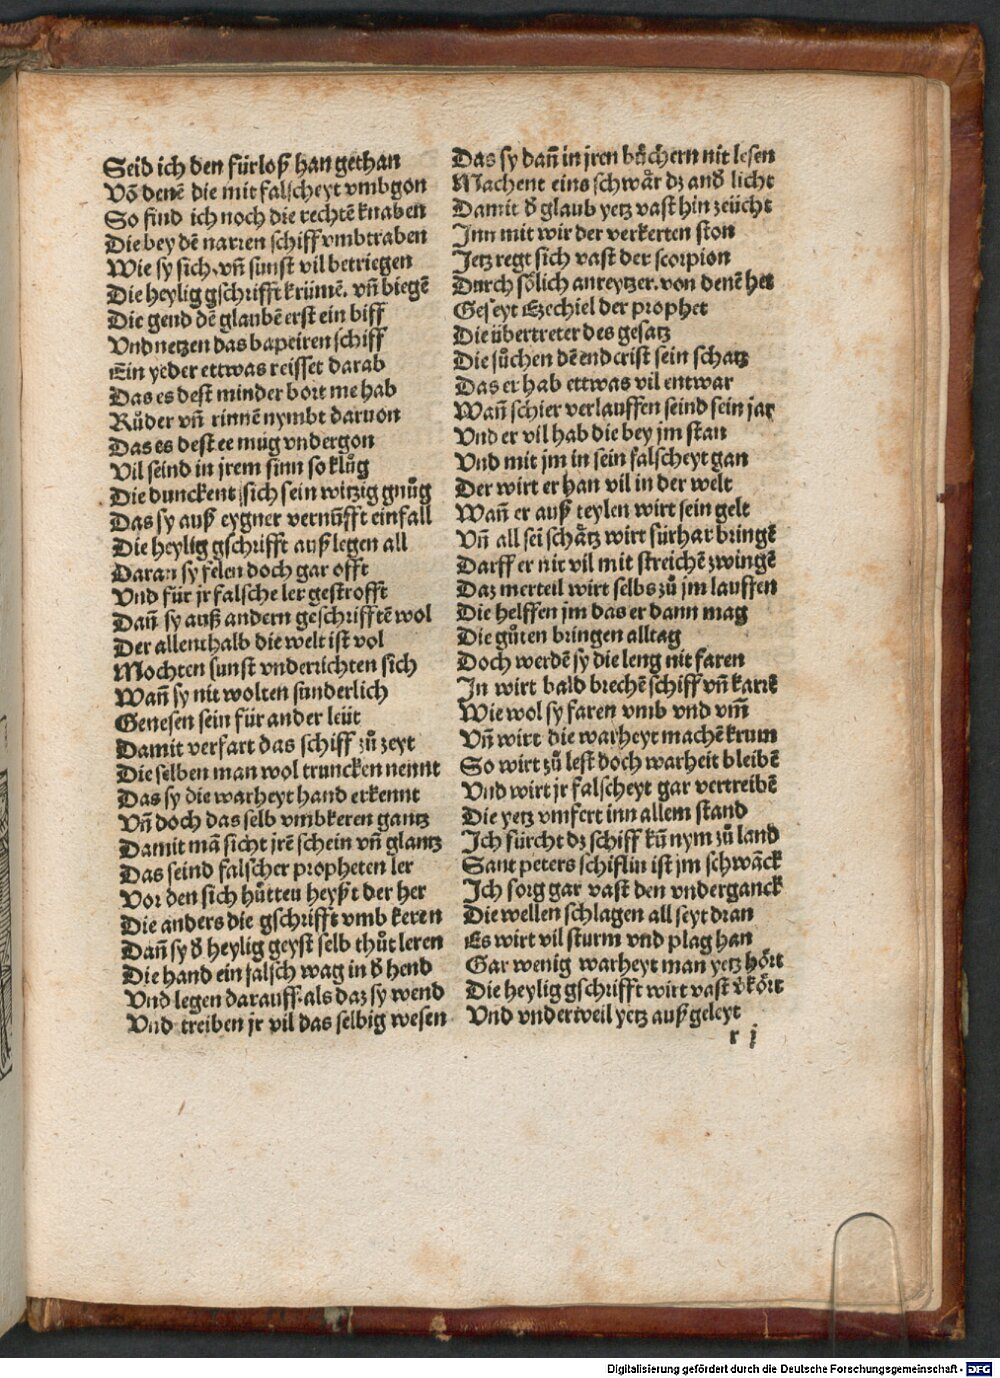 Seid ich den fürloß han gethan
Võ denē die mit falscheyt vmbgon
So find ich noch die rechtē knaben
Die bey dē narren schiff vmbtraben
Wie sy sich, vñ sunst vil betriegen
Die heylig gschrifft krümē. vñ biegē
Die gend dē glaubē erst ein biff
Vnd netzen das bapeiren schiff
Ein yeder ettwas reisset darab
Das es dest minder bort me hab
Růder vñ rinnē nymbt daruon
Das es dest ee mug vndergon
Vil seind in jrem sinn so klůg
Die dunckent sich sein witzig gnůg
Das sy auß eygner vernũfft einfall
Die heylig gschrifft auß legen all
Daran sy felen doch gar offt
Vnd für jr falsche ler gestrofft
Dañ sy auß andern geschrifftē wol
Der allenthalb die welt ist vol
Mochten sunst vnderrichten sich
Wañ sy nit wolten sunderlich
Genesen sein für ander leüt
Damit verfart das schiff zů zeyt
Die selben man wol truncken nennt
Das sy die warheyt hand erkennt
Vñ doch das selb vmbkeren gantz
Damit mā sicht jrē schein vñ glantz
Das seind falscher propheten ler
Vor den sich hůtten heyßt der her
Die anders die gschrifft vmb keren
Dañ sy d̕ heylig geyst selb thůt leren
Die hand ein falsch wag in d̕ hend
Vnd legen darauff als daz sy wend
Vnd treiben jr vil das selbig wesen
Das sy dañ in jren bůchern nit lesen
Machent eins schwår dz and̕ licht
Damit d̕ glaub yetz vast hin zeücht
Inn mit wir der verkerten ston
Jetz regt sich vast der scorpion
Durch sölich anreytzer. von denē het
Geseyt Ezechiel der prophet
Die übertreter des gesatz
Die sůchen dē endcrist sein schatz
Das er hab ettwas vil entwar
Wañ schier verlauffen seind sein jar
Vnd er vil hab die bey jm stan
Vnd mit jm in sein falscheyt gan
Der wirt er han vil in der welt
Wañ er auß teylen wirt sein gelt
Vñ all sei schåtz wirt fürhar bringē
Darff er nit vil mit streichē zwingē
Daz merteil wirt selbs zů jm lauffen
Die helffen jm das er dann mag
Die gůten bringen alltag
Doch werdē sy die leng nit faren
In wirt bald brechē schiff vñ karrē
Wie wol sy faren vmb vnd vm̄
Vñ wirt die warheyt machē krum
So wirt zů lest doch warheit bleibē
Vnd wirt jr falscheyt gar vertreibē
Die yetz vmfert inn allem stand
Ich fürcht dz schiff kũ nym zů land
Sant peters schiflin ist jm schwāck
Ich sorg gar vast den vnderganck
Die wellen schlagen all seyt dran
Es wirt vil sturm vnd plag han
Gar wenig warheyt man yetz hört
Die heylig gschrifft wirt vast v̕kört
Vnd vnderweil yetz auß geleyt
r j
Digitalisierung gefördert durch die Deutsche Forschungsgemeinschaft - DFG